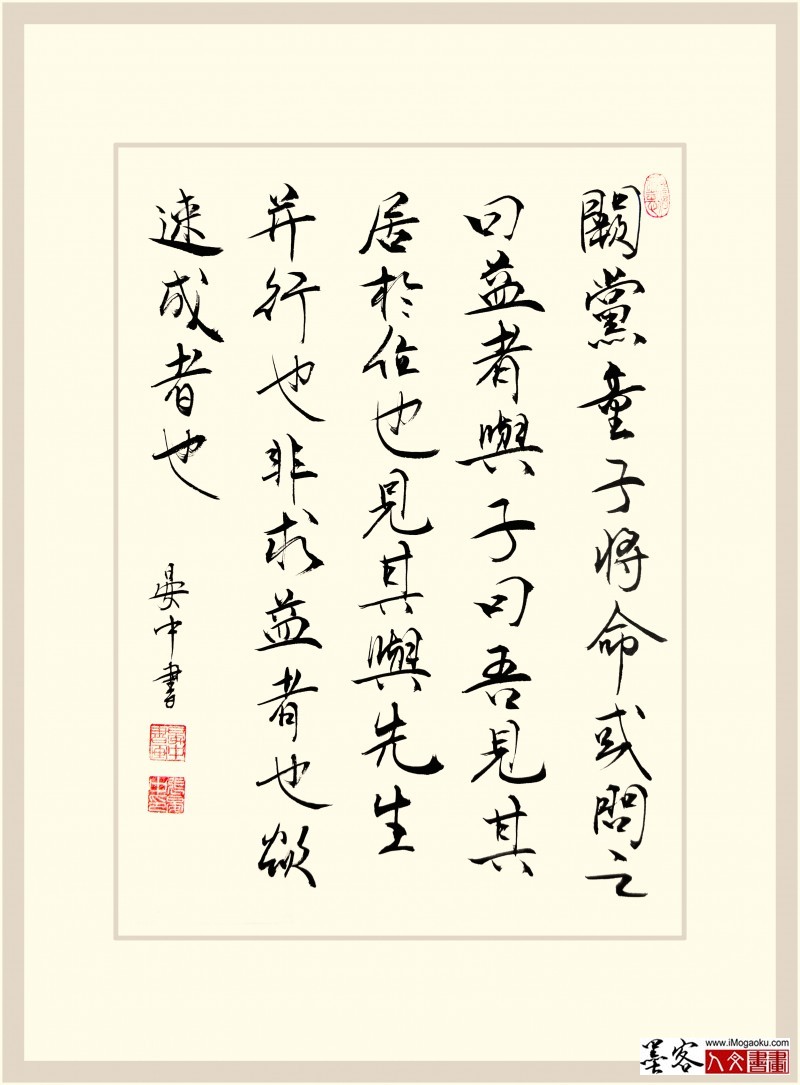 闕黨童子將命或問之
曰益者與子曰吾見其
居於位也見其與先生
并行也非求益者也欲
速成者也
晏中書
www.iMogaoku.com
墨客
人文書畫